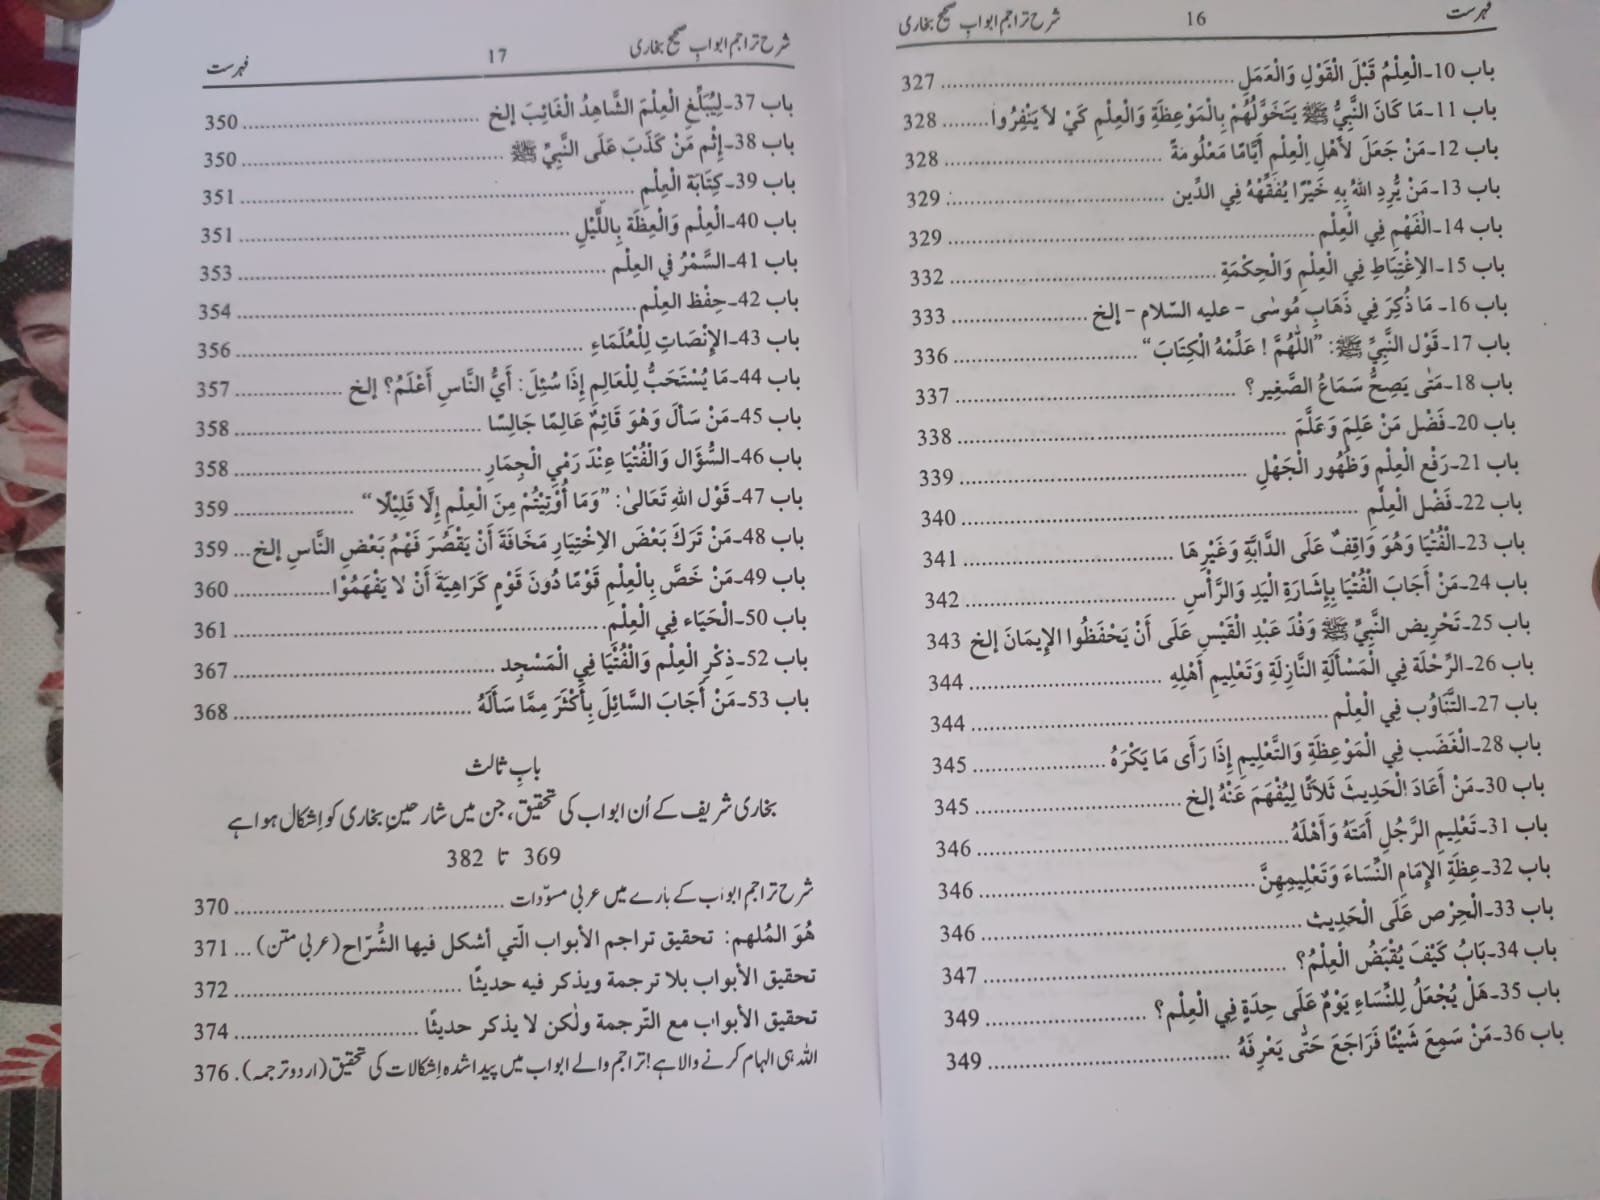 فہرست 16 شرح تراجم ابوابِ صحیح بخاری
باب 10۔الْعِلْمُ قَبْلَ الْقَوْلِ وَالْعَمَلِ ........ 327
باب 11۔مَا كَانَ النَّبِيُّ ﷺ يَتَخَوَّلُهُمْ بِالْمَوْعِظَةِ وَالْعِلْمِ كَيْ لاَ يَنْفِرُوا ........ 328
باب 12۔مَنْ جَعَلَ لأَهْلِ الْعِلْمِ أَيَّامًا مَعْلُومَةً ........ 328
باب 13۔مَنْ يُّرِدِ اللهُ بِهِ خَيْرًا يُفَقِّهْهُ فِي الدِّين ........ 329
باب 14۔الْفَهْمِ فِي الْعِلْم ........ 329
باب 15۔الاِغْتِبَاطِ فِي الْعِلْمِ وَالْحِكْمَةِ ........ 332
باب 16۔ مَا ذُكِرَ فِي ذَهَابِ مُوسٰى – عليه السّلام – إلخ ........ 333
باب 17۔قَوْل النَّبِيِّ ﷺ: ”اللّٰهُمَّ ! عَلِّمْهُ الْكِتَابَ“ ........ 336
باب 18۔مَتٰى يَصِحُّ سَمَاعُ الصَّغِير؟ ........ 337
باب 20۔فَضْل مَنْ عَلِمَ وَعَلَّمَ ........ 338
باب 21۔رَفْع الْعِلْمِ وَظُهُور الْجَهْلِ ........ 339
باب 22۔فَضْل الْعِلْمِ ........ 340
باب 23۔الْفُتْيَا وَهُوَ وَاقِفٌ عَلَى الدَّابَّةِ وَغَيْرِهَا ........ 341
باب 24۔مَنْ أَجَابَ الْفُتْيَا بِإِشَارَةِ الْيَدِ وَالرَّأْسِ ........ 342
باب 25۔تَحْرِيض النَّبِيِّ ﷺ وَفْدَ عَبْدِ الْقَيْسِ عَلَى أَنْ يَحْفَظُوا الإِيمَانَ إلخ 343
باب 26۔الرِّحْلَة فِي الْمَسْأَلَةِ النَّازِلَةِ وَتَعْلِيمِ أَهْلِهِ ........ 344
باب 27۔التَّنَاوُب فِي الْعِلْم ........ 344
باب 28۔الْغَضَب فِي الْمَوْعِظَةِ وَالتَّعْلِيمِ إِذَا رَأَى مَا يَكْرَهُ ........ 345
باب 30۔مَنْ أَعَادَ الْحَدِيثَ ثَلاَثًا لِيُفْهَمَ عَنْهُ إلخ ........ 345
باب 31۔تَعْلِيمِ الرَّجُلِ أَمَتَهُ وَأَهْلَهُ ........ 346
باب 32۔عِظَةِ الإِمَامِ النِّسَاءَ وَتَعْلِيمِهِنَّ ........ 346
باب 33۔الْحِرْص عَلَى الْحَدِيث ........ 346
باب 34۔بَابُ كَيْفَ يُقْبَضُ الْعِلْمُ؟ ........ 347
باب 35۔هَلْ يُجْعَلُ لِلنِّسَاءِ يَوْمٌ عَلَى حِدَةٍ فِي الْعِلْم؟ ........ 349
باب 36۔مَنْ سَمِعَ شَيْئًا فَرَاجَعَ حَتّٰى يَعْرِفَهُ ........ 349
شرح تراجم ابوابِ صحیح بخاری 17 فہرست
باب 37۔لِيُبَلِّغِ الْعِلْمَ الشَّاهِدُ الْغَائِبَ إلخ ........ 350
باب 38۔إِثْم مَنْ كَذَبَ عَلَى النَّبِيِّ ﷺ ........ 350
باب 39۔كِتَابَة الْعِلْمِ ........ 351
باب 40۔الْعِلْم وَالْعِظَة بِاللَّيْلِ ........ 351
باب 41۔السَّمْرُ في العِلْم ........ 353
باب 42۔حِفْظ العِلْم ........ 354
باب 43۔الإِنْصَاتِ لِلْعُلَمَاءِ ........ 356
باب 44۔مَا يُسْتَحَبُّ لِلْعَالِمِ إِذَا سُئِلَ: أَيُّ النَّاسِ أَعْلَمُ؟ إلخ ........ 357
باب 45۔مَنْ سَأَلَ وَهْوَ قَائِمٌ عَالِمًا جَالِسًا ........ 358
باب 46۔السُّؤَال وَالْفُتْيَا عِنْدَ رَمْيِ الْجِمَارِ ........ 358
باب 47۔قَوْل اللهِ تَعَالىٰ: ”وَمَا أُوْتِيْتُمْ مِنَ الْعِلْمِ إِلَّا قَلِيْلًا“ ........ 359
باب 48۔مَنْ تَرَكَ بَعْضَ الاِخْتِيَارِ مَخَافَةَ أَنْ يَقْصُرَ فَهْمُ بَعْضِ النَّاسِ إلخ ... 359
باب 49۔مَنْ خَصَّ بِالْعِلْمِ قَوْمًا دُونَ قَوْمٍ كَرَاهِيَةَ أَنْ لَا يَفْهَمُوْا ........ 360
باب 50۔الْحَيَاء فِي الْعِلْمِ ........ 361
باب 52۔ذِكْرِ الْعِلْم وَالْفُتْيَا فِي الْمَسْجِد ........ 367
باب 53۔مَنْ أَجَابَ السَّائِلَ بِأَكْثَرَ مِمَّا سَأَلَهُ ........ 368
بابِ ثالث
بخاری شریف کے اُن ابواب کی تحقیق، جن میں شارحینِ بخاری کو اِشکال ہوا ہے
369 تا 382
شرح تراجم ابواب کے بارے میں عربی مسوّدات ........ 370
هُوَ المُلهم: تحقيق تراجم الأبواب الّتي أشكل فيها الشُّرّاح (عربی متن) ... 371
تحقيق الأبواب بلا ترجمة ويذكر فيه حديثًا ........ 372
تحقيق الأبواب مع التّرجمة ولٰكن لا يذكر حديثًا ........ 374
اللہ ہی الہام کرنے والا ہے! تراجم والے ابواب میں پیدا شدہ اِشکالات کی تحقیق (اردو ترجمہ) . 376